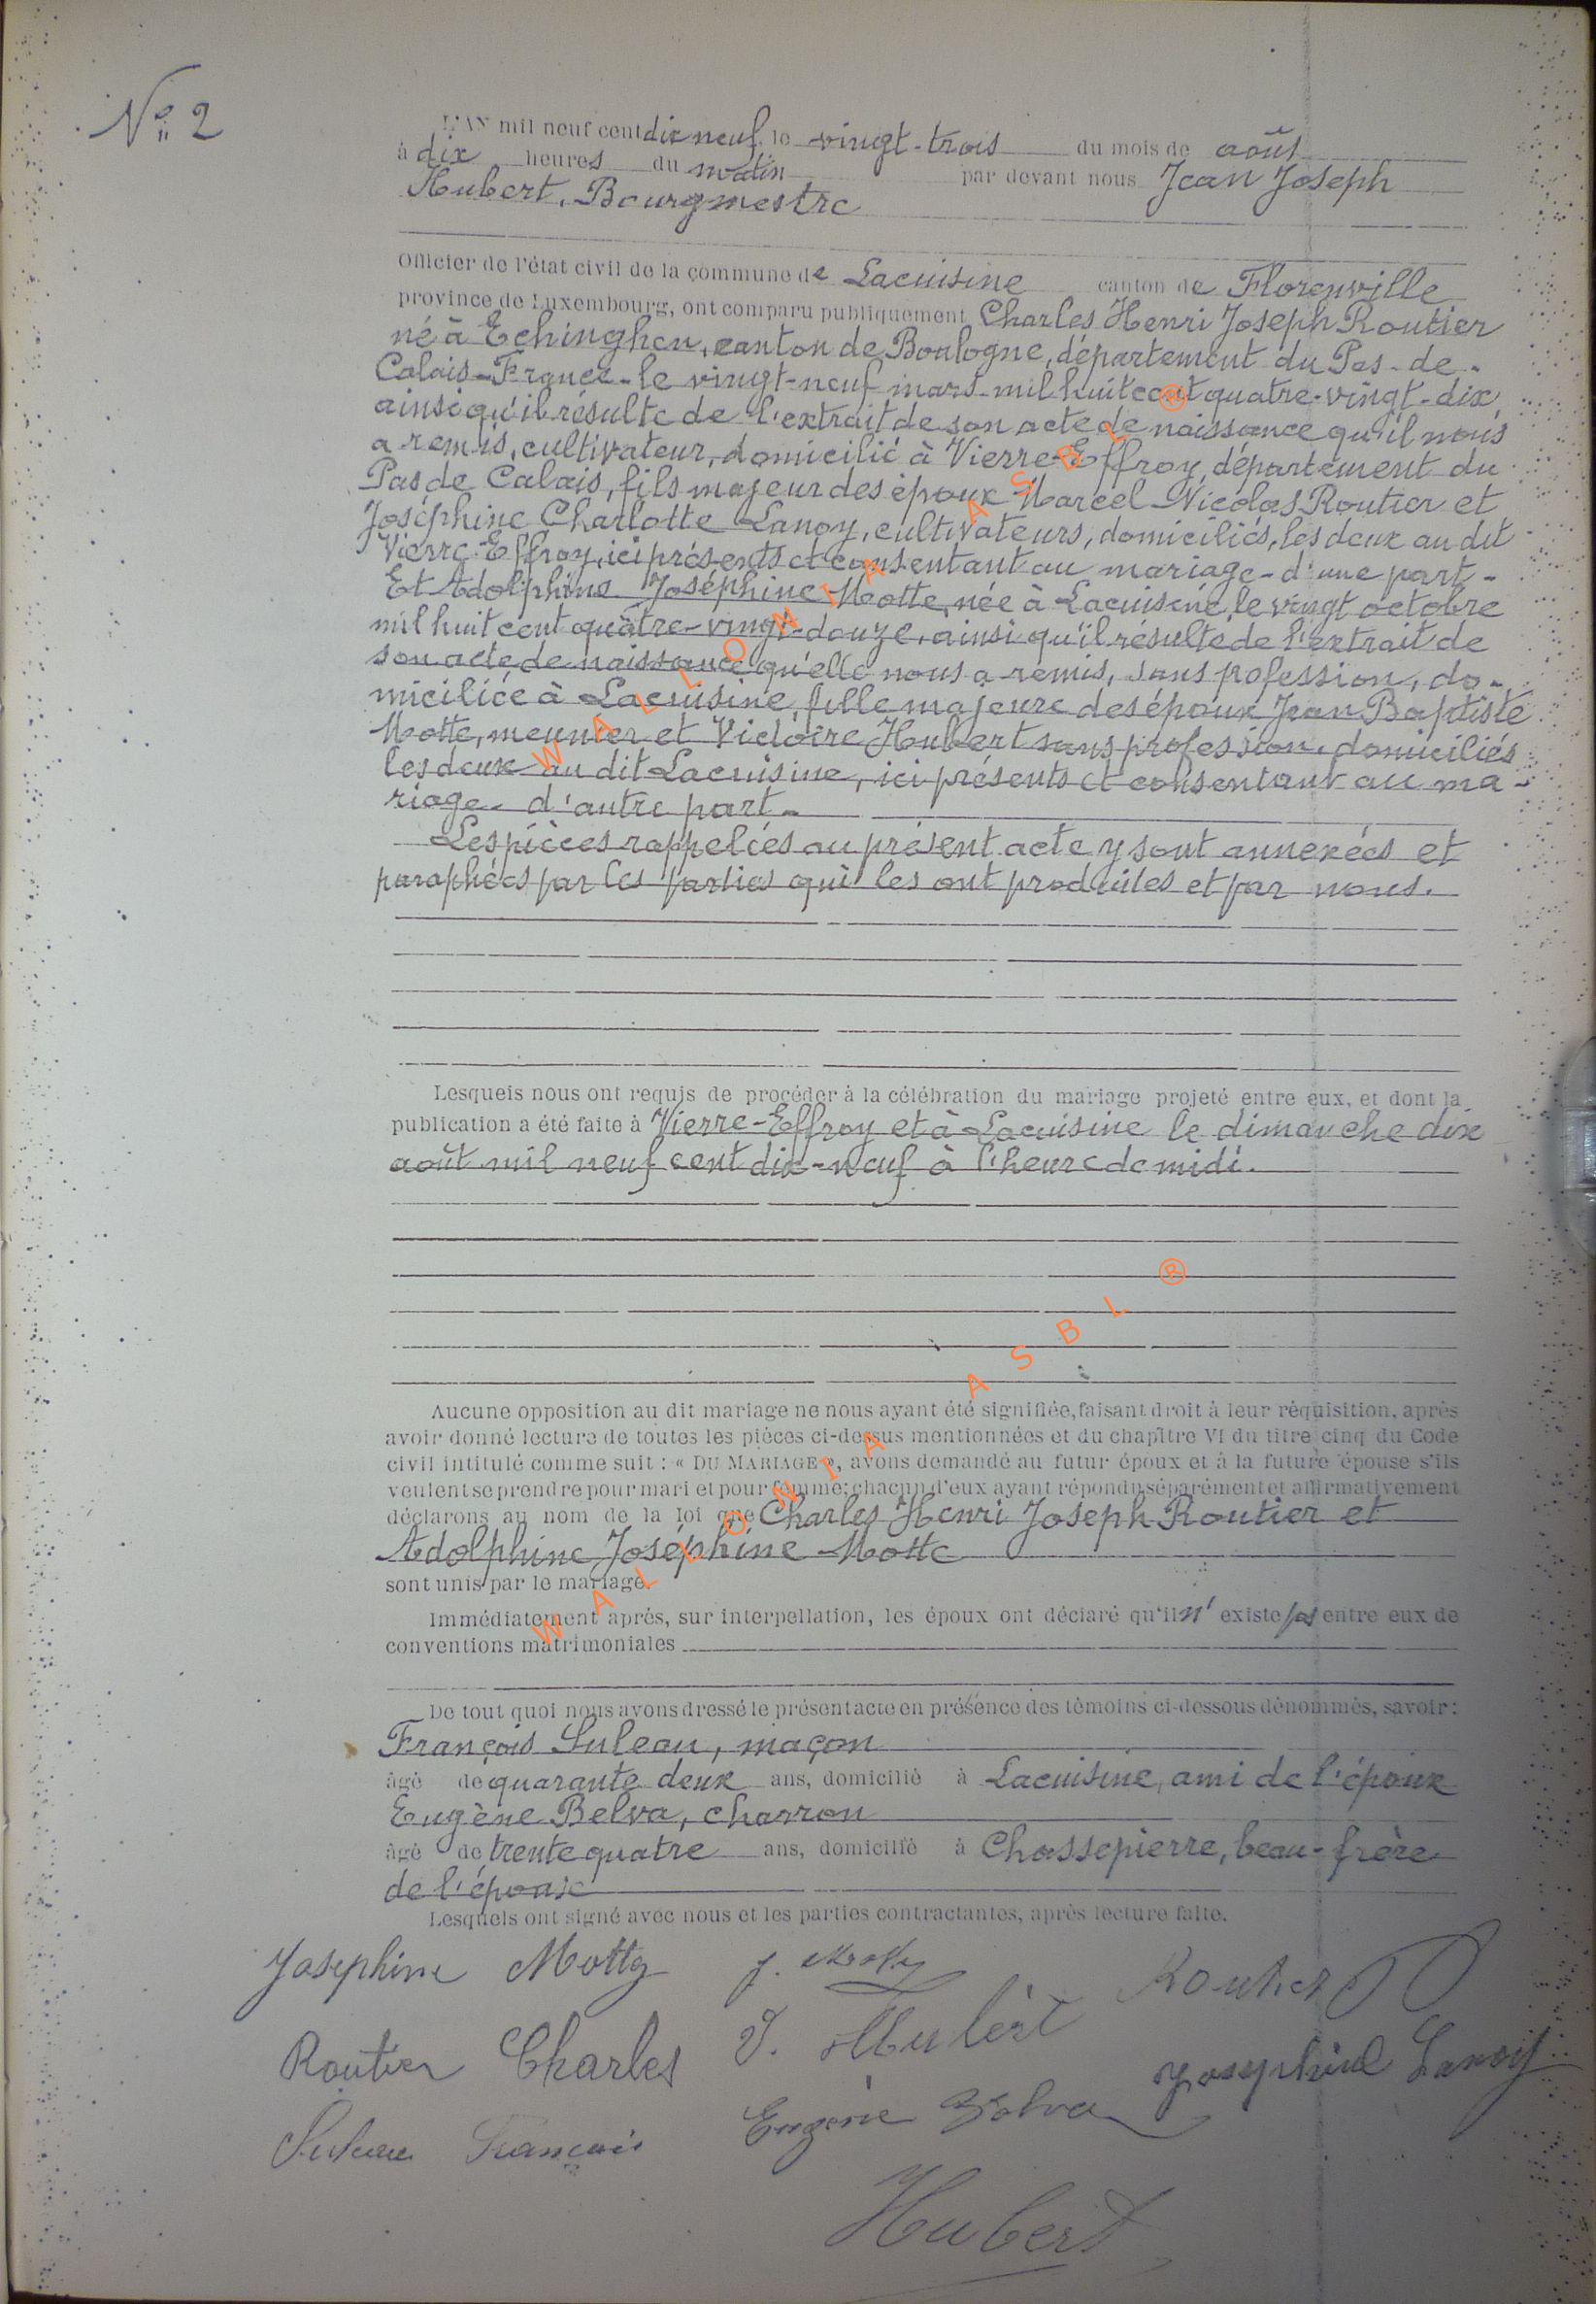 N° 2
L'AN mil neuf cent dix neuf, le vingt-trois du mois de août
à dix heures du matin par devant nous Jean Joseph
Hubert, Bourgmestre
Officier de l'état civil de la commune de Lacuisine canton de Florenville
province de Luxembourg, ont comparu publiquement Charles Henri Joseph Routier
né à Echinghen, canton de Boulogne, département du Pas-de-
Calais-France-le vingt-neuf mars mil huit cent quatre-vingt-dix
ainsi qu'il résulte de l'extrait de son acte de naissance qu'il nous
a remis, cultivateur, domicilié à Vierre-Effroy, département du
Pas de Calais, fils majeur des époux Marcel Nicolas Routier et
Joséphine Charlotte Lanoy, cultivateurs, domiciliés, les deux au dit
Vierre-Effroy, ici présents et consentant au mariage-d'une part-
Et Adolphine Joséphine Motte, née à Lacuisine, le vingt octobre
mil huit cent quatre-vingt-douze, ainsi qu'il résulte de l'extrait de
son acte de naissance qu'elle nous a remis, sans profession, do-
miciliée à Lacuisine fille majeure des époux Jean Baptiste
Motte, meunier et Victoire Hubert sans profession, domiciliés
les deux au dit Lacuisine, ici présents et consentant au ma-
riage- d'autre part-
Les pièces rappelées au présent acte y sont annexées et
paraphées par les parties qui les ont produites et par nous.
Lesquels nous ont requis de procéder à la célébration du mariage projeté entre eux, et dont la
publication a été faite à Vierre-Effroy et à Lacuisine le dimanche dix
août mil neuf cent dix-neuf à l'heure de midi.
Aucune opposition au dit mariage ne nous ayant été signifiée, faisant droit à leur réquisition, après
avoir donné lecture de toutes les pièces ci-dessus mentionnées et du chapître VI du titre cinq du Code
civil intitulé comme suit : « DU MARIAGE », avons demandé au futur époux et à la future épouse s'ils
veulent se prendre pour mari et pour femme; chacun d'eux ayant répondu séparément et affirmativement
déclarons au nom de la loi que Charles Henri Joseph Routier et
Adolphine Joséphine Motte
sont unis par le mariage.
Immédiatement après, sur interpellation, les époux ont déclaré qu'il n'existe pas entre eux de
conventions matrimoniales
De tout quoi nous avons dressé le présent acte en présence des témoins ci-dessous dénommés, savoir :
François Suleau, maçon
âgé de quarante deux ans, domicilié à Lacuisine, ami de l'époux
Eugène Belva, charron
âgé de trente quatre ans, domicilié à Chassepierre, beau-frère
de l'épouse
Lesquels ont signé avec nous et les parties contractantes, après lecture faite.
Josephine Motte J. Motte Routier
Routier Charles V. Hubert Josephine Lanoy
Suleau François Eugène Belva
Hubert
WALLONIA ASBL ®
WALLONIA ASBL ®